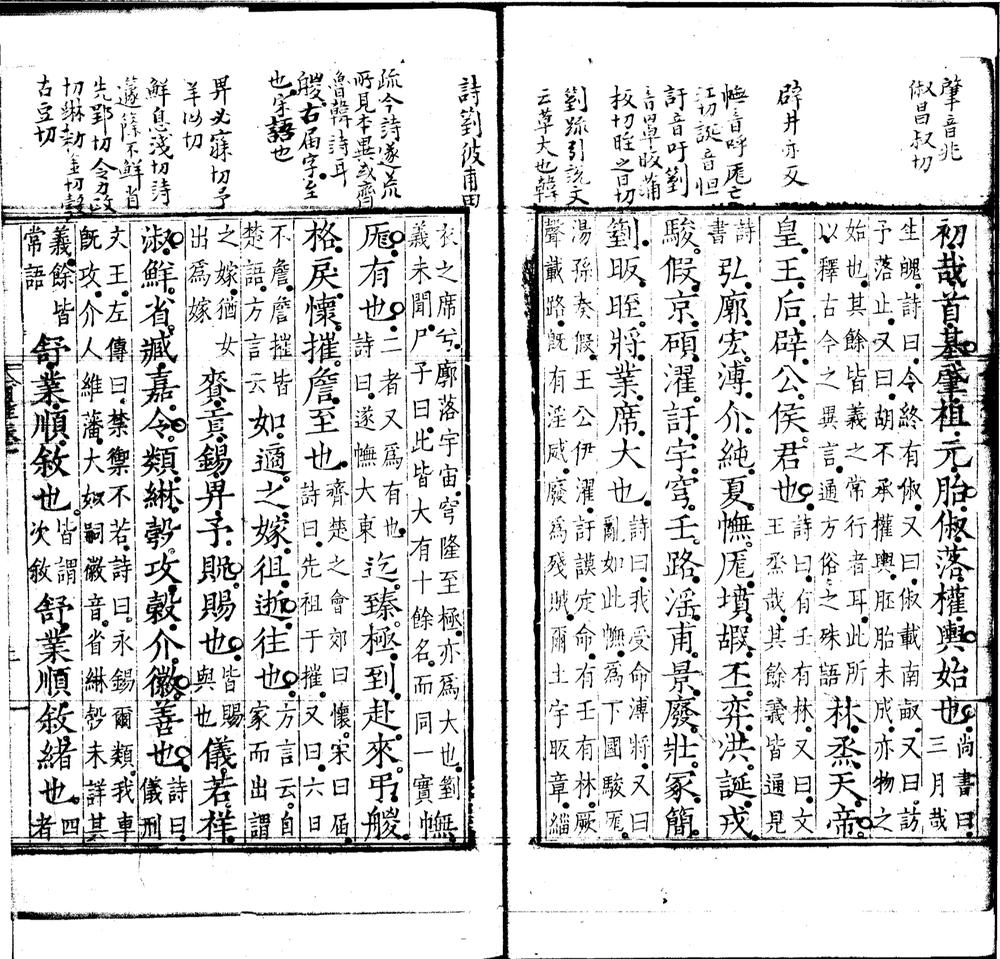 肇音兆
俶昌叔切
辟井亦反
幠音呼厖亡
江切誕音但
訏音吁箌
音罩昄蒲
板切晊之日切
箌䟽引説文
云草大也韓
初哉首基肇祖元胎俶落權輿始也
尚書曰
三月哉
生魄詩曰令終有俶又曰俶載南畝又曰訪
予落止又曰胡不承權輿胚胎未成亦物之
始也其餘皆義之常行者耳此所
以釋古今之異言通方俗之殊語
林烝天帝
皇王后辟公侯君也
詩曰有壬有林又曰文
王烝哉其餘義皆通見
詩
書
弘廓宏溥介純夏幠厖墳嘏丕弈洪誕戎
駿假京碩濯訏宇穹壬路淫甫景廢壯冢簡
箌昄晊將業席大也
詩曰我受命溥將又曰
亂如此幠為下國駿厖
湯孫奏假王公伊濯訏謨定命有壬有林厥
聲載路既有淫威廢為殘賊爾土宇昄章緇
詩箌彼甫田
疏今詩遂荒
所見本異或齊
魯韓詩耳
艐古届字至
也宋語也
畀必寐切予
羊汝切
鮮息淺切詩
籧篨不鮮省
先郢切令力政
切綝勑金切彀
古豆切
衣之席兮廓落宇宙穹隆至極亦為大也箌
義未聞尸子曰此皆大有十餘名而同一實
幠
厖有也
二者又為有也
詩曰遂幠大東
迄臻極到赴來弔艐
格戾懷摧詹至也
齊楚之會郊曰懷宋曰届
詩曰先祖于摧又曰六日
不詹詹摧皆
楚語方言云
如適之嫁徂逝往也
方言云自
家而出謂
之嫁猶女
出為嫁
賚貢錫畀予貺賜也
皆賜
與也
儀若祥
淑鮮省臧嘉令類綝彀攻穀介徽善也
詩曰
儀刑
文王左傳曰禁禦不若詩曰永錫爾類我車
既攻介人維藩大姒嗣徽音省綝彀未詳其
義餘皆
常語
舒業順敘也
皆謂
次敘
舒業順敘緒也
四
者